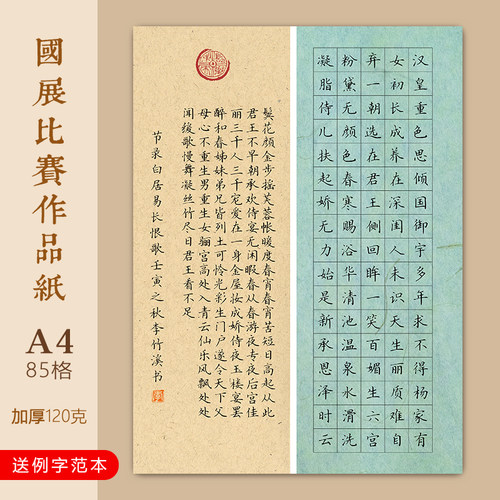 國展比賽作品紙
A4
85格
加厚120克
送例字范本
汉皇重色思倾国御宇多年求不得杨家有
女初长成养在深闺人未识天生丽质难自
弃一朝选在君王侧回眸一笑百媚生六宫
粉黛无颜色春寒赐浴华清池温泉水滑洗
凝脂侍儿扶起娇无力始是新承恩泽时云
鬓花颜金步摇芙蓉帐暖度春宵春宵苦短日高起从此
君王不早朝承欢侍宴无闲暇春从春游夜专夜后宫佳
丽三千人三千宠爱在一身金屋妆成娇侍夜玉楼宴罢
醉和春姊妹弟兄皆列土可怜光彩生门户遂令天下父
母心不重生男重生女骊宫高处入青云仙乐风飘处处
闻缓歌慢舞凝丝竹尽日君王看不足
节录白居易长恨歌壬寅之秋李竹溪书